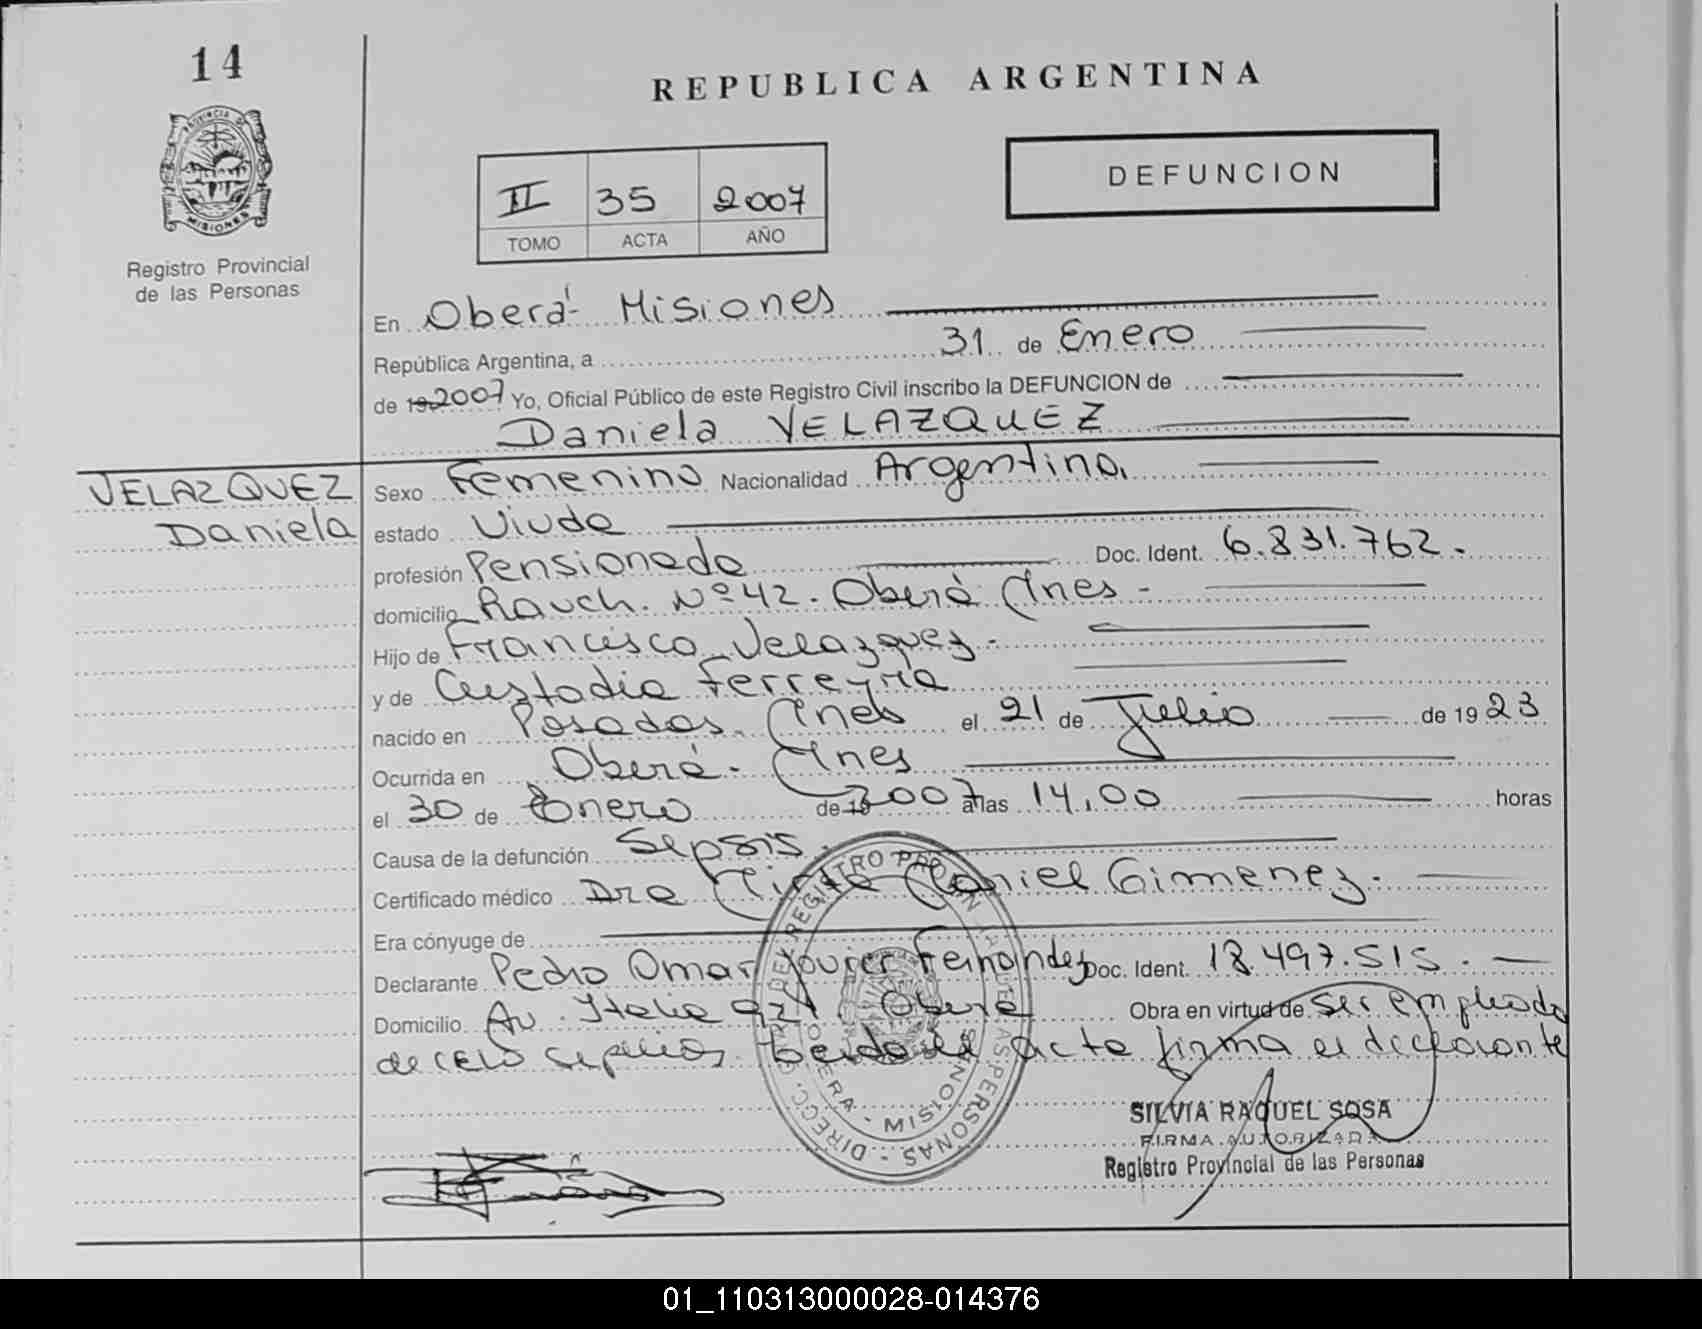 14
REPUBLICA ARGENTINA
PROVINCIA DE
MISIONES
Registro Provincial
de las Personas
II 35 2007
TOMO ACTA AÑO
DEFUNCION
En Oberá - Misiones
República Argentina, a 31 de Enero
de 19 2007 Yo, Oficial Público de este Registro Civil inscribo la DEFUNCION de
Daniela VELAZQUEZ
VELAZQUEZ
Daniela
Sexo Femenino Nacionalidad Argentina.
estado Viuda
profesión Pensionada Doc. Ident. 6.831.762.
domicilio Rauch. Nº 42. Oberá Mnes -
Hijo de Francisco Velazquez.
y de Custodia Ferreyra
nacido en Posadas, Mnes el 21 de Julio de 19 23
Ocurrida en Oberá - Mnes
el 30 de Enero de 19 2007 a las 14,00 horas
Causa de la defunción Sepsis.
Certificado médico Dra Daniel Gimenez.
Era cónyuge de
Declarante Pedro Omar Fernandez Doc. Ident. 18.497.515.
Domicilio Av. Italia Oberá Obra en virtud de ser empleado
de sepelios. Leida el acta firma el declarante
OBERA - MISIONES
SILVIA RAQUEL SOSA
FIRMA AUTORIZADA
Registro Provincial de las Personas
01_110313000028-014376